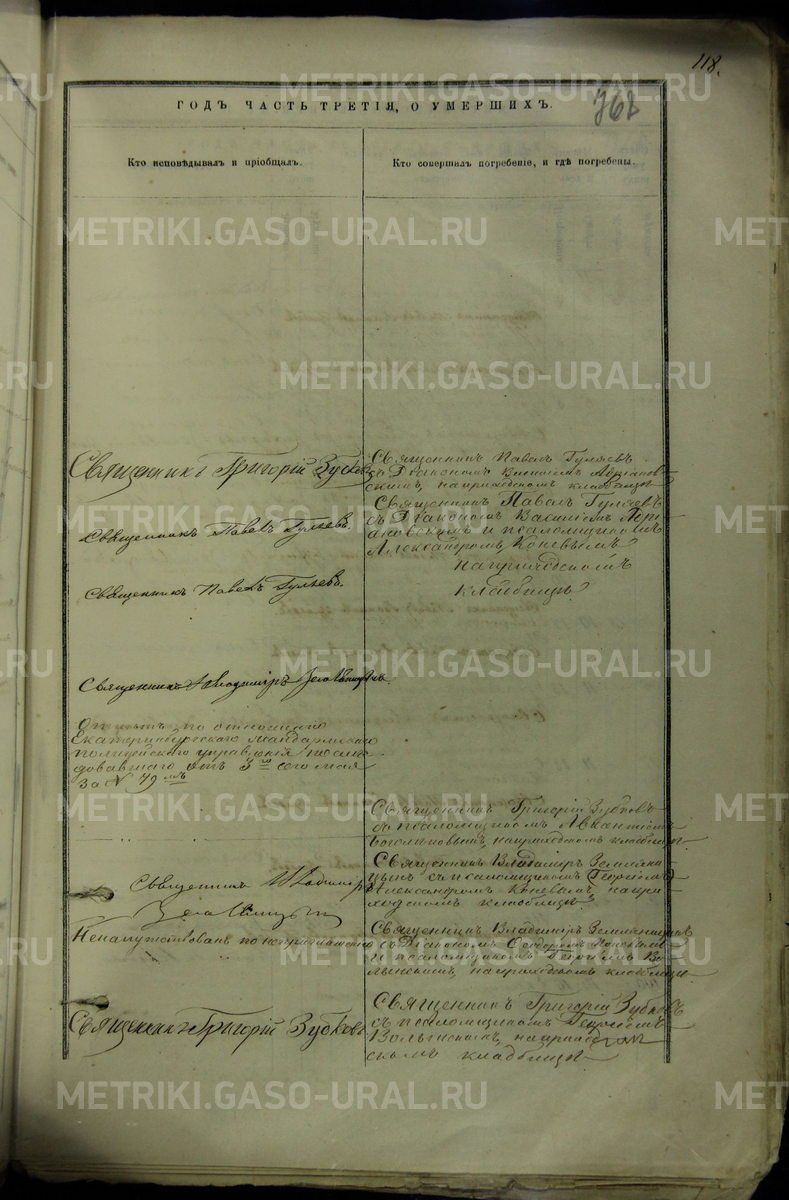 118.
762
ГОДЪ ЧАСТЬ ТРЕТІЯ, О УМЕРШИХЪ.
Кто исповѣдывалъ и пріобщалъ.
Кто совершалъ погребеніе, и гдѣ погребены.
Священникъ Григорій Зубковъ
Священникъ Павелъ Гуляевъ
съ Діакономъ Василіемъ Адріанов-
скимъ, на приходскомъ кладбищѣ
Священникъ Павелъ Гуляевъ.
Священникъ Павелъ Гуляевъ
съ Діакономъ Василіемъ Адрі-
ановскимъ и псаломщикомъ
Александромъ Коневымъ
на приходскомъ
кладбищѣ
Священникъ Павелъ Гуляевъ.
Священникъ Владиміръ Земляницынъ.
по отношенію
Екатеринбургскаго жандармскаго
полицейскаго управленія послѣ-
довавшаго отъ 3го сего мая
за № 79мъ
Священникъ Григорій Зубковъ
съ псаломщикомъ
на приходскомъ кладбищѣ
Священникъ Владиміръ
Земляницынъ
Священникъ Владиміръ Земляни-
цынъ съ псаломщикомъ Георгіемъ
Александромъ Коневымъ, на при-
ходскомъ кладбищѣ
Ненапутствованъ по неприглашенію
Священникъ Владиміръ Земляницынъ
съ Діакономъ Ѳеодоромъ
и псаломщикомъ Георгіемъ Во-
лынскимъ, на приходскомъ кладбищѣ
Священникъ Григорій Зубковъ
Священникъ Григорій Зубковъ
съ псаломщикомъ Георгіемъ
Волынскимъ, на приход-
скомъ кладбищѣ
METRIKI.GASO-URAL.RU